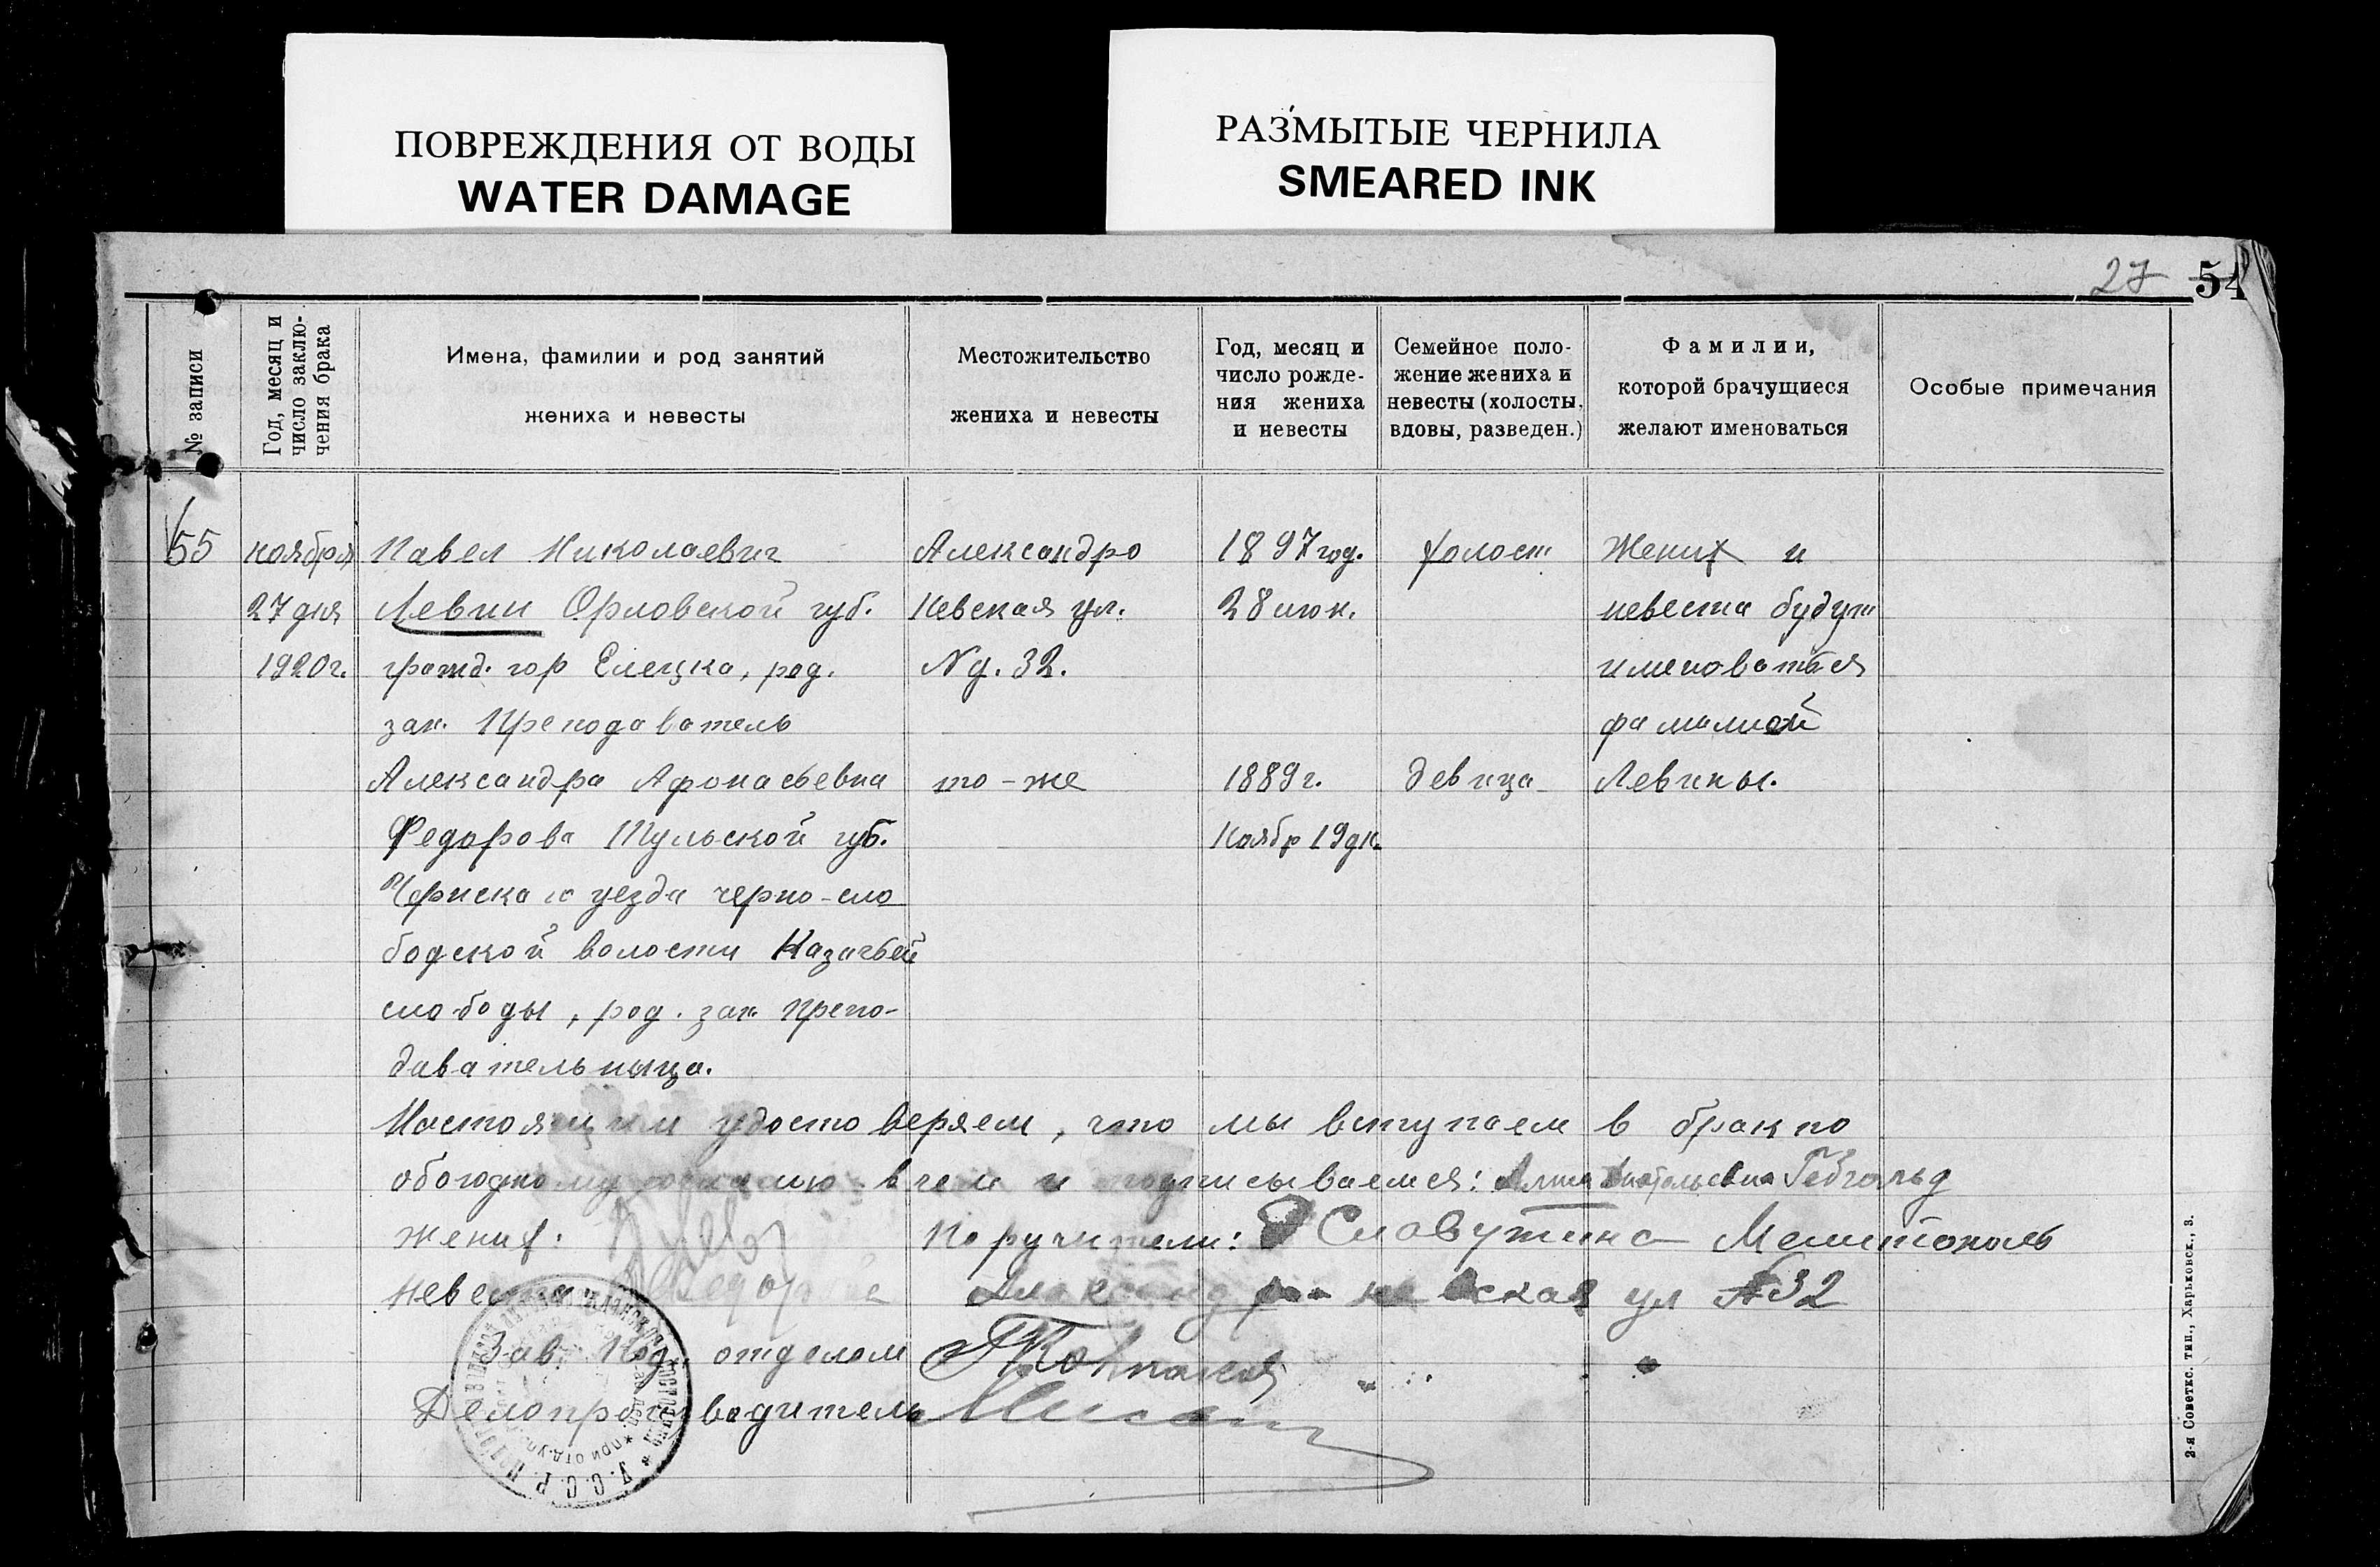 ПОВРЕЖДЕНИЯ ОТ ВОДЫ
WATER DAMAGE
РАЗМЫТЫЕ ЧЕРНИЛА
SMEARED INK
27 54
№ записи
Год, месяц и
число заклю-
чения брака
Имена, фамилии и род занятий
жениха и невесты
Местожительство
жениха и невесты
Год, месяц и
число рожде-
ния жениха
и невесты
Семейное поло-
жение жениха и
невесты (холосты,
вдовы, разведен.)
Фамилии,
которой брачущиеся
желают именоваться
Особые примечания
55
ноября
27 дня
1920г.
Павел Николаевич
Левин Орловской губ.
гражд. гор Елецка, род.
зан. Преподаватель
Александро
Невская ул.
№ д. 32.
1897 год.
28 июн.
холост
Жених и
невеста будут
именоваться
фамилией
Левины.
Александра Афонасьевна
Федорова Тульской губ.
Чернска го уезда черно-сло
бодской волости Казачьей
слободы, род. зан. Препо-
давательныца.
то-же
1889г.
Ноябр 19 дн.
девица
Настоящим удостоверяем, что мы вступаем в брак по
обоюдному в чем и подписываемся:
жених:
Поручители: Славутина Мелитополь
невеста
Александро невская ул №32
Зав. Под. отделом
Делопроизводитель
У.С.С.Р.
2-я Советкс. тип., Харьковск., 3.